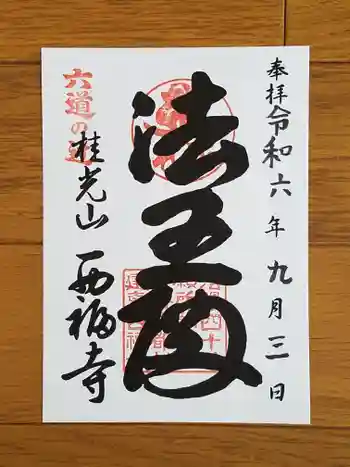 奉拝 令和六年九月三日
法王殿
六道の辻
桂光山 西福寺